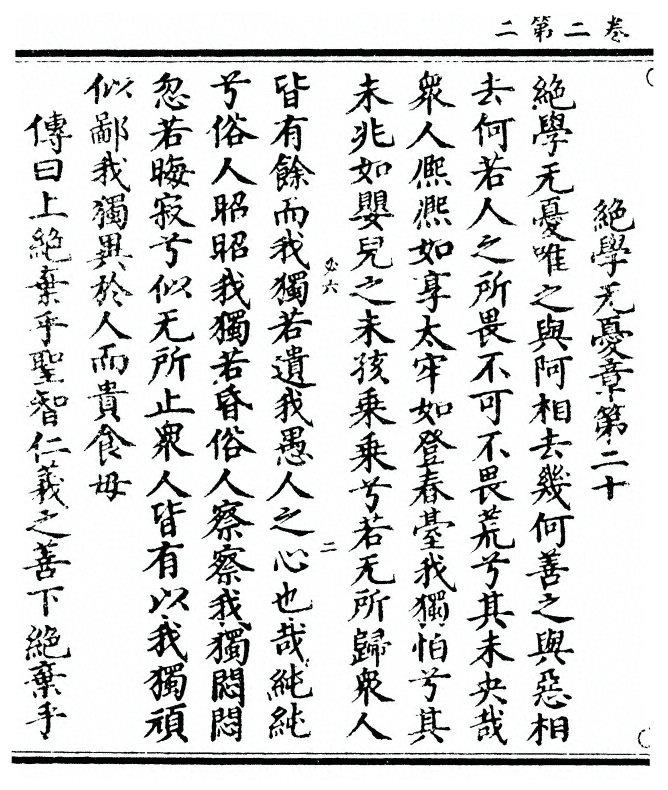 卷二第二
絕學无憂章第二十
絕學无憂唯之與阿相去幾何善之與惡相
去何若人之所畏不可不畏荒兮其未央哉
衆人熈熈如享太牢如登春臺我獨怕兮其
未兆如嬰兒之未孩乘乘兮若无所歸衆人
必六
二
皆有餘而我獨若遺我愚人之心也哉純純
兮俗人昭昭我獨若昏俗人察察我獨悶悶
忽若晦寂兮似无所止衆人皆有以我獨頑
似鄙我獨異於人而貴食母
傳曰上絕棄乎聖智仁義之善下絕棄乎